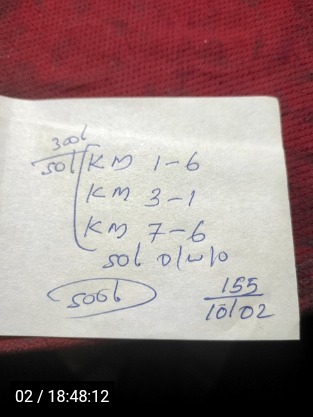 300b
50b KM 1-6
KM 3-1
KM 7-6
50b D/W/D
500b
155
10/02
02 / 18:48:12